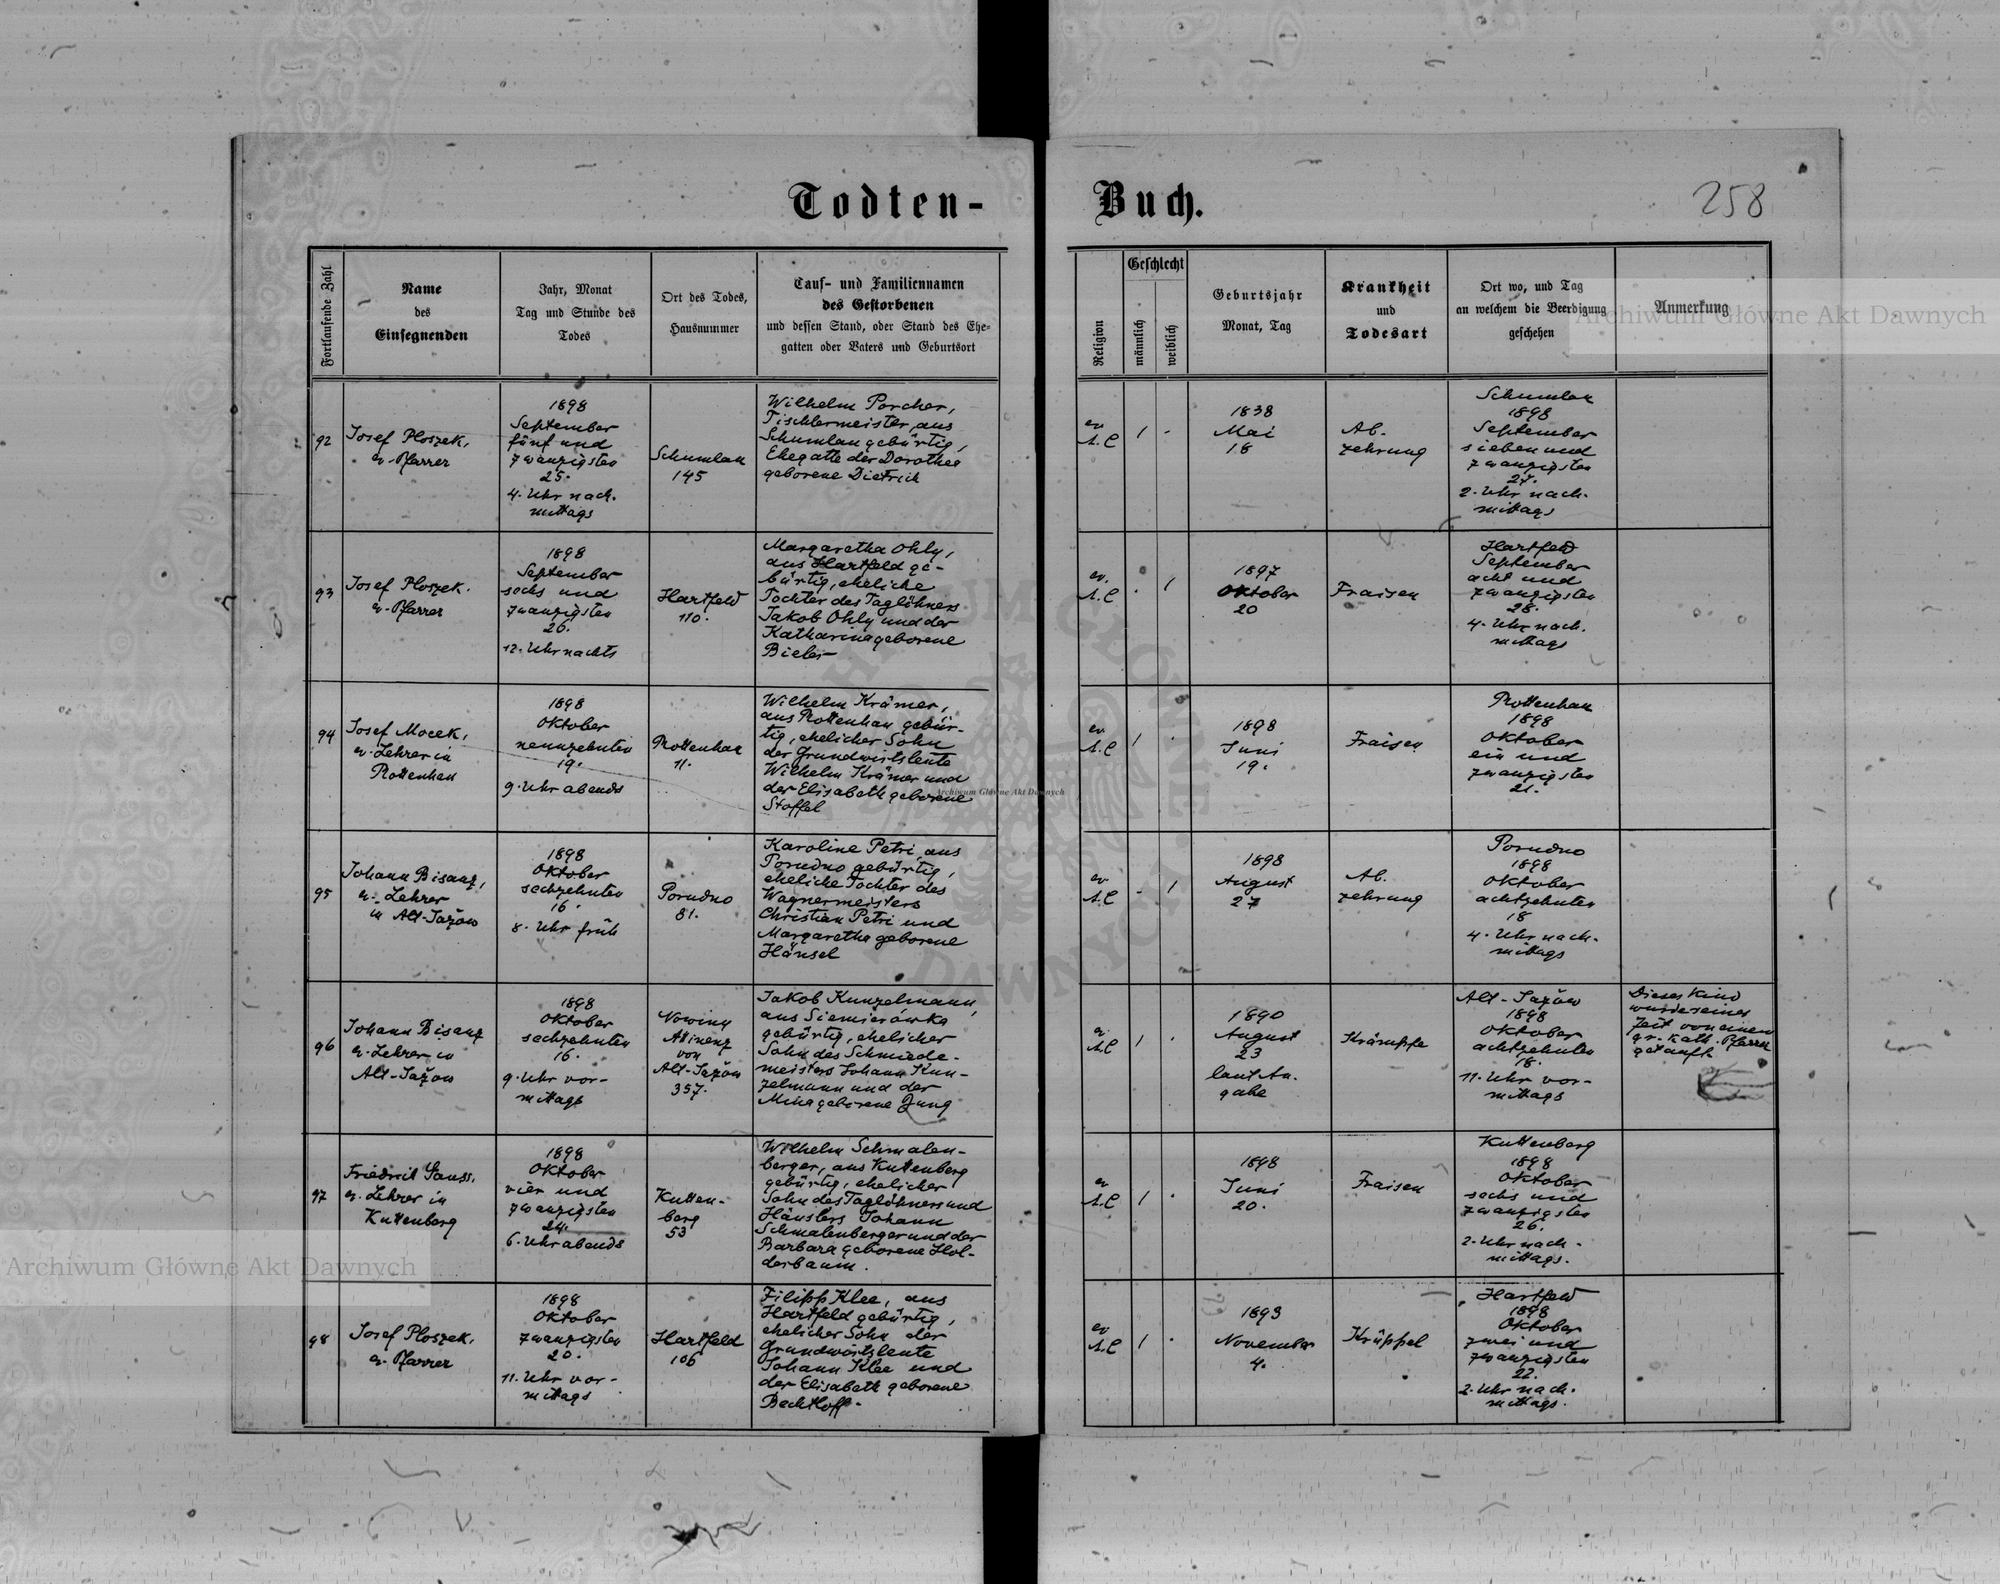 Todten-
Buch.
258
Fortlaufende Zahl
Name
des
Einsegnenden
Jahr, Monat
Tag und Stunde des
Todes
Ort des Todes,
Hausnummer
Tauf- und Familiennamen
des Gestorbenen
und dessen Stand, oder Stand des Ehe-
gatten oder Vaters und Geburtsort
Religion
Geschlecht
männlich
weiblich
Geburtsjahr
Monat, Tag
Krankheit
und
Todesart
Ort wo, und Tag
an welchem die Beerdigung
geschehen
Anmerkung
92
Josef Ploszek,
ev. Pfarrer
1898
September
fünf und
zwanzigsten
25.
4. Uhr nach.
mittags
Schumlau
145
Wilhelm Porcher,
Tischlermeister, aus
Schumlau gebürtig,
Ehegatte der Dorothea
geborene Dietrich
ev
A.C
1
-
1838
Mai
18
Ab.
zehrung
Schumlau
1898
September
sieben und
zwanzigsten
27.
2. Uhr nach.
mittags
93
Josef Ploszek.
ev. Pfarrer
1898
September
sechs und
zwanzigsten
26.
12. Uhr nachts
Hartfeld
110.
Margaretha Ohly,
aus Hartfeld ge-
bürtig, eheliche
Tochter des Taglöhners
Jakob Ohly und der
Katharina geborene
Bieler
ev.
A.C
.
1
1897
Oktober
20
Fraisen
Hartfeld
September
acht und
zwanzigsten
28.
4. Uhr nach.
mittags
94
Josef Mocek,
ev. Lehrer in
Rottenhan
1898
Oktober
neunzehnten
19.
9. Uhr abends
Rottenhan
11.
Wilhelm Krämer,
aus Rottenhan gebür-
tig, ehelicher Sohn
der Grundwirtsleute
Wilhelm Krämer und
der Elisabeth geborene
Stoffel
ev
A.C
1
.
1898
Juni
19.
Fraisen
Rottenhan
1898
Oktober
ein und
zwanzigsten
21.
95
Johann Bisanz,
ev. Lehrer
in Alt-Jažow
1898
Oktober
sechzehnten
16.
8. Uhr früh
Porudno
81.
Karoline Petri, aus
Porudno gebürtig,
eheliche Tochter des
Wagnermeisters
Christian Petri und
Margaretha geborene
Hänsel
ev
A.C
-
1
1898
August
27
Ab.
zehrung
Porudno
1898
Oktober
achtzehnten
18
4. Uhr nach-
mittags
96
Johann Bisanz
ev. Lehrer in
Alt-Jažow
1898
Oktober
sechzehnten
16.
9. Uhr vor-
mittags
Nowiny
Attinenz
von
Alt-Jažow
357.
Jakob Kunzelmann,
aus Siemierówka
gebürtig, ehelicher
Sohn des Schmiede-
meisters Johann Kun-
zelmann und der
Mina geborene Jung
ev
A.C
1
.
1890
August
23
laut An.
gabe
Krämpfe
Alt-Jažow
1898
Oktober
achtzehnten
18.
11. Uhr vor-
mittags
Dieses Kind
wurde seines
Zeit von einem
gr. kath. Pfarrer
getauft
97
Friedrich
ev. Lehrer in
Kuttenberg
1898
Oktober
vier und
zwanzigsten
24.
6. Uhr abends
Kutten-
berg
53
Wilhelm Schmalen-
berger, aus Kuttenberg
gebürtig, ehelicher
Sohn des Taglöhners und
Häuslers Johann
Schmalenberger und der
Barbara geborene Hol-
derbaum.
ev
A.C
1
.
1898
Juni
20.
Fraisen
Kuttenberg
1898
Oktober
sechs und
zwanzigsten
26.
2. Uhr nach-
mittags.
98
Josef Ploszek,
ev. Pfarrer
1898
Oktober
zwanzigsten
20.
11. Uhr vor-
mittags
Hartfeld
106
Filipp Klee, aus
Hartfeld gebürtig,
ehelicher Sohn der
Grundwirtsleute
Johann Klee und
der Elisabeth geborene
Bechtloff.
ev
A.C
1
.
1893
November
4.
Krüppel
Hartfeld
1898
Oktober
zwei und
zwanzigsten
22.
2. Uhr nach.
mittags.
Archiwum Główne Akt Dawnych
Archiwum Główne Akt Dawnych
Archiwum Główne Akt Dawnych